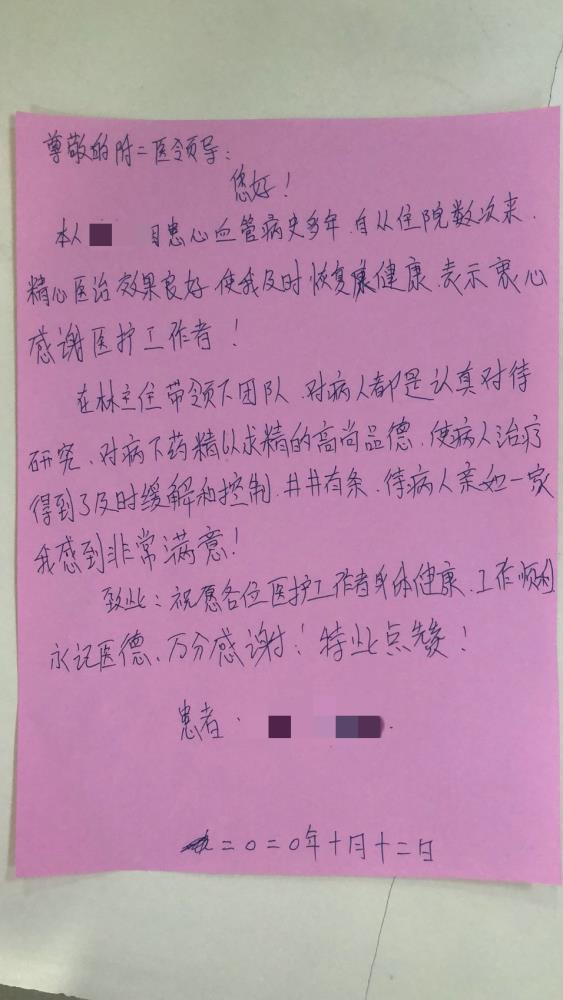 尊敬的附二医领导:
您好!
本人 因患心血管病史多年.自从住院数次来.
精心医治效果良好.使我及时恢复健康.表示衷心
感谢医护工作者!
在林主任带领下团队.对病人都是认真对待
研究、对病下药精以求精的高尚品德.使病人治疗
得到了及时缓解和控制.井井有条.待病人亲如一家
我感到非常满意!
致此:祝愿各位医护工作者身体健康.工作顺利
永记医德、万分感谢!特此点赞!
患者:
二0二0年十月十二日